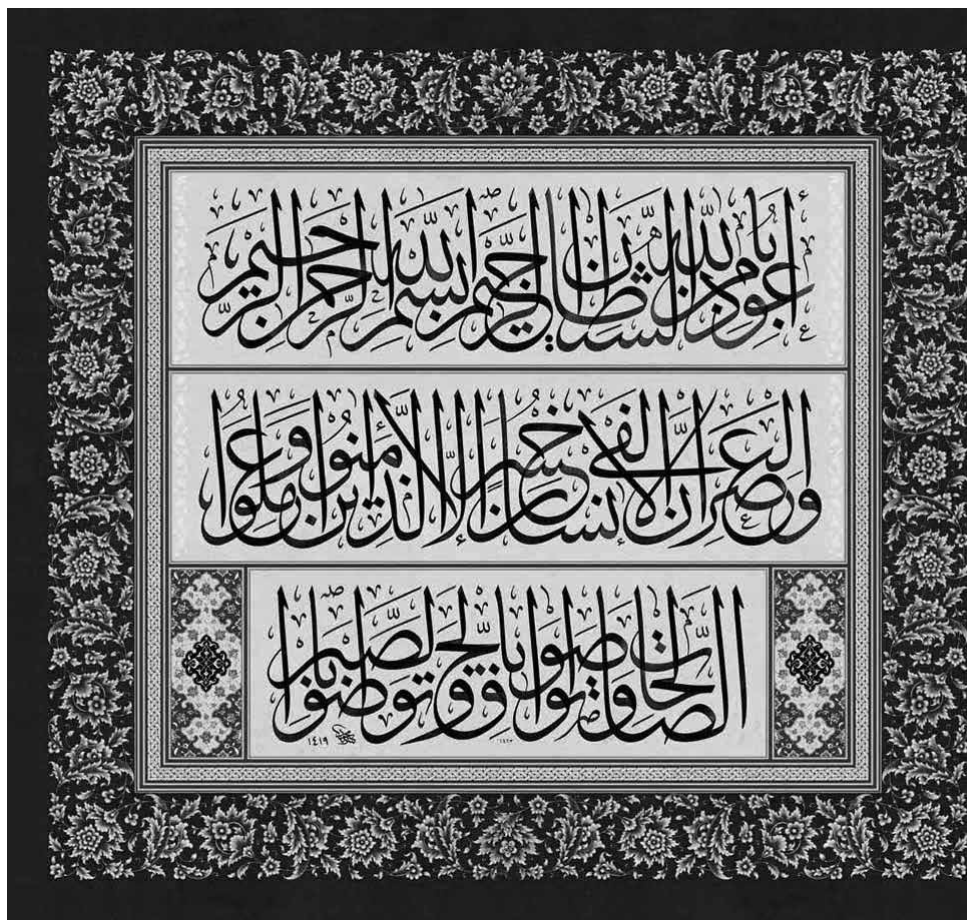 أعوذ بالله من الشيطان الرجيم بسم الله الرحمن الرحيم
والعصر إن الإنسان لفي خسر إلا الذين آمنوا وعملوا
الصالحات وتواصوا بالحق وتواصوا بالصبر
١٤١٩